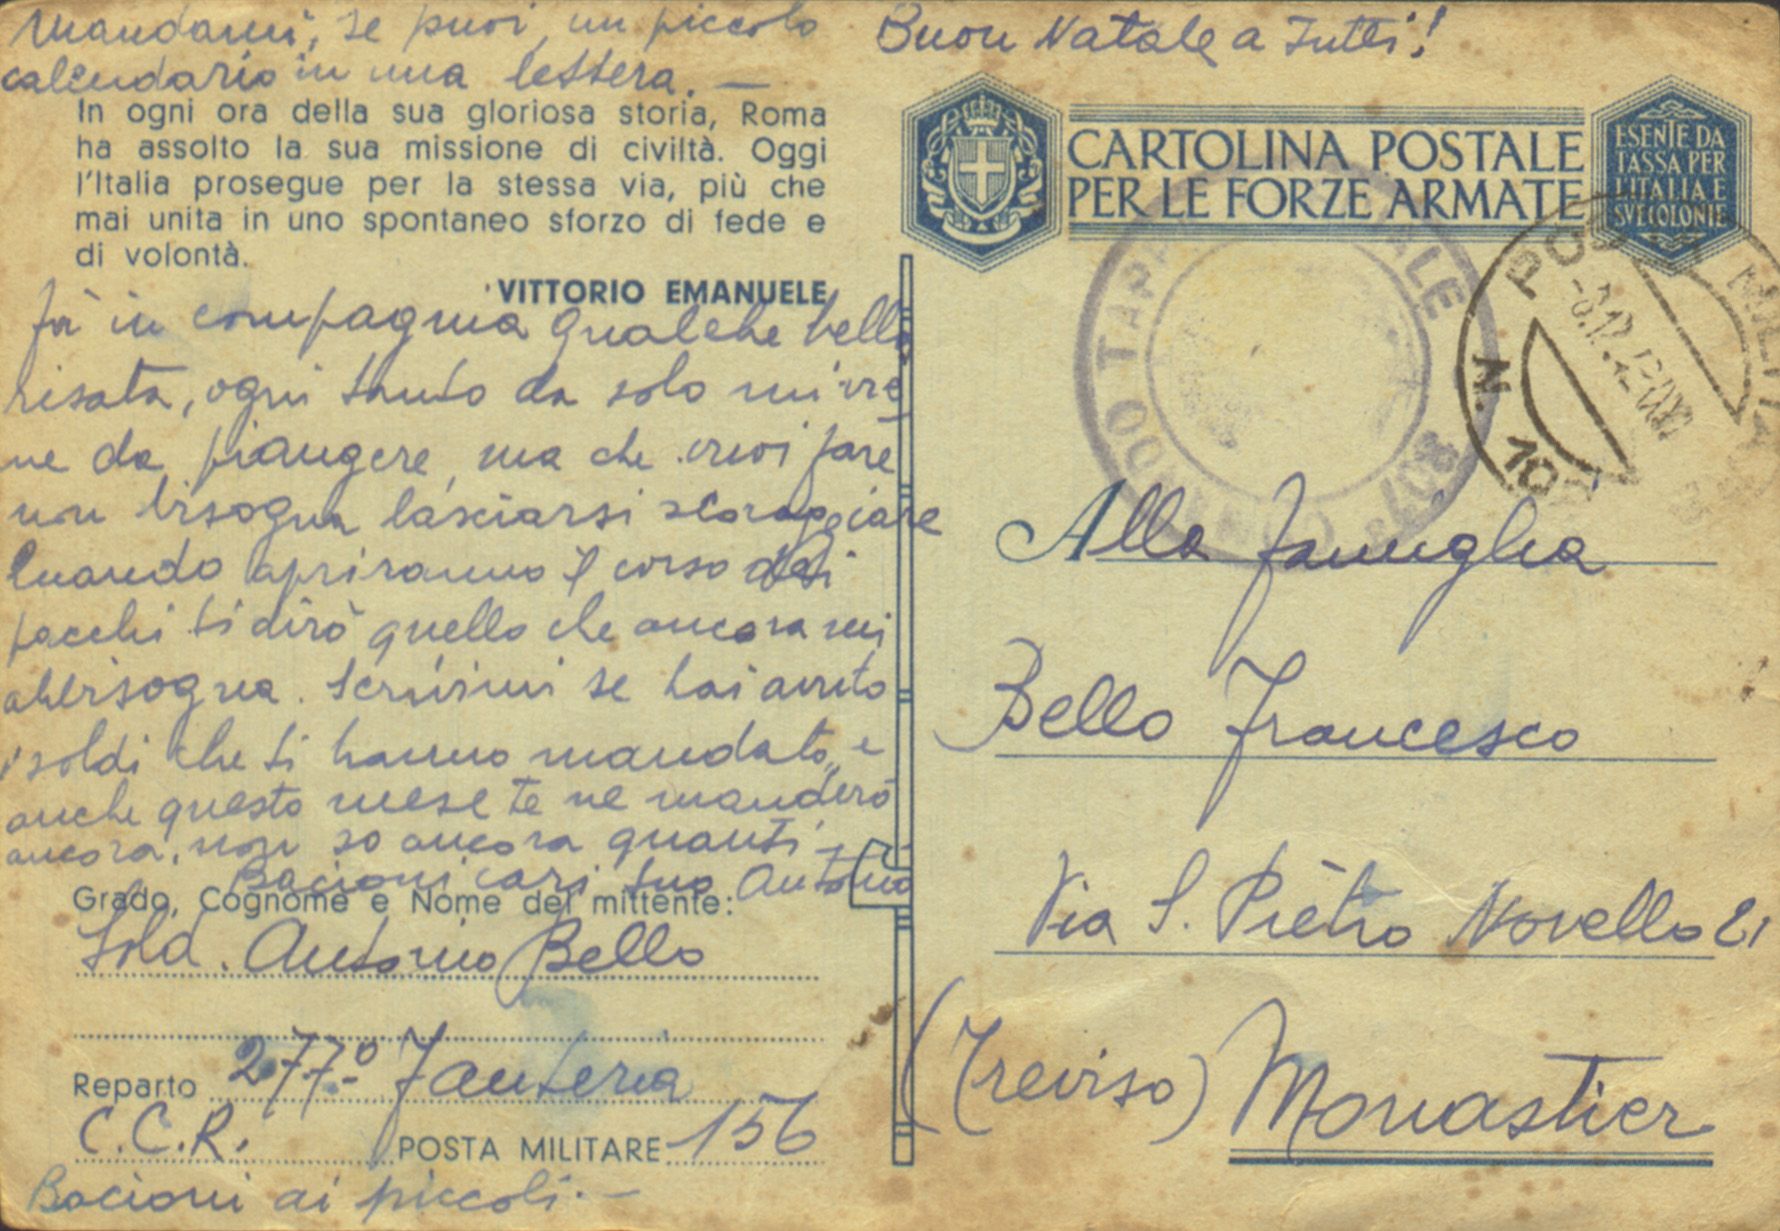 Mandami, se puoi, un piccolo
calendario in una lettera. —
In ogni ora della sua gloriosa storia, Roma
ha assolto la sua missione di civiltà. Oggi
l'Italia prosegue per la stessa via, più che
mai unita in uno spontaneo sforzo di fede e
di volontà.
VITTORIO EMANUELE
fò in compagnia qualche bella
risata, ogni tanto da solo mi vie
ne da piangere, ma che vuoi fare
non bisogna lasciarsi scoraggiare
Quando apriranno il corso dei
pacchi ti dirò quello che ancora mi
abbisogna. Scrivimi se hai avuto
i soldi che ti hanno mandato, e
anche questo mese te ne manderò
ancora, non so ancora quanti —
Bacioni cari tuo Antonio
Grado, Cognome e Nome del mittente:
Sold. Antonio Bello
Reparto 277º Fanteria
C.C.R. POSTA MILITARE 156
Bacioni ai piccoli. —
Buon Natale a tutti!
CARTOLINA POSTALE
PER LE FORZE ARMATE
ESENTE DA
TASSA PER
L'ITALIA E
SVE COLONIE
POSTA MILITA
N. 10
-8.12.42
COMANDO TAPPA
Alla famiglia
Bello Francesco
Via S. Piètro Novello 21
(Treviso) Monastier